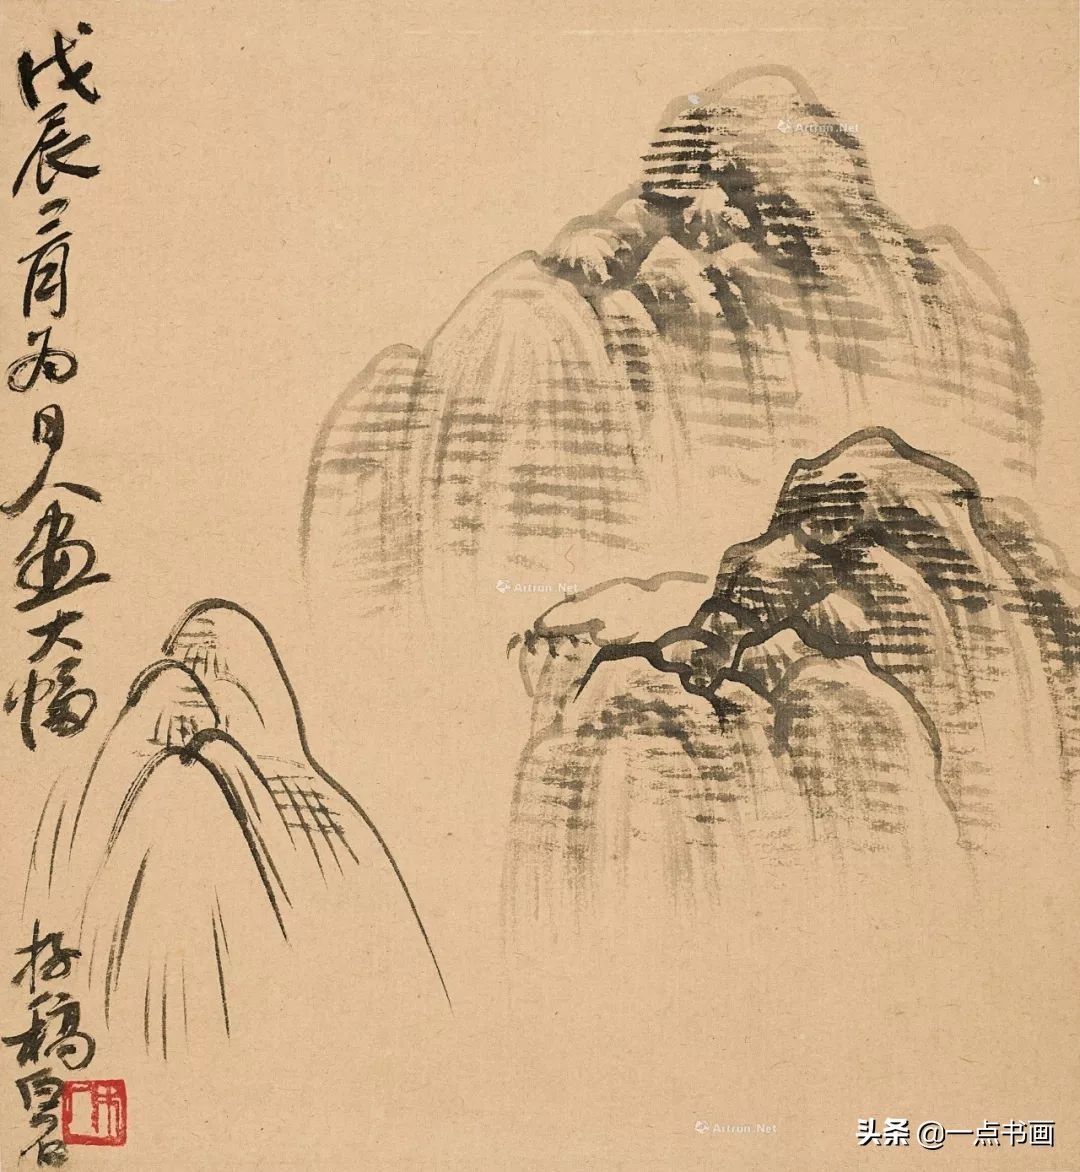 戊辰二月为日人畫大幅
存稿白石
木人
Artron.Net
Artron.Net
Artron.Net
头条 @一点书画